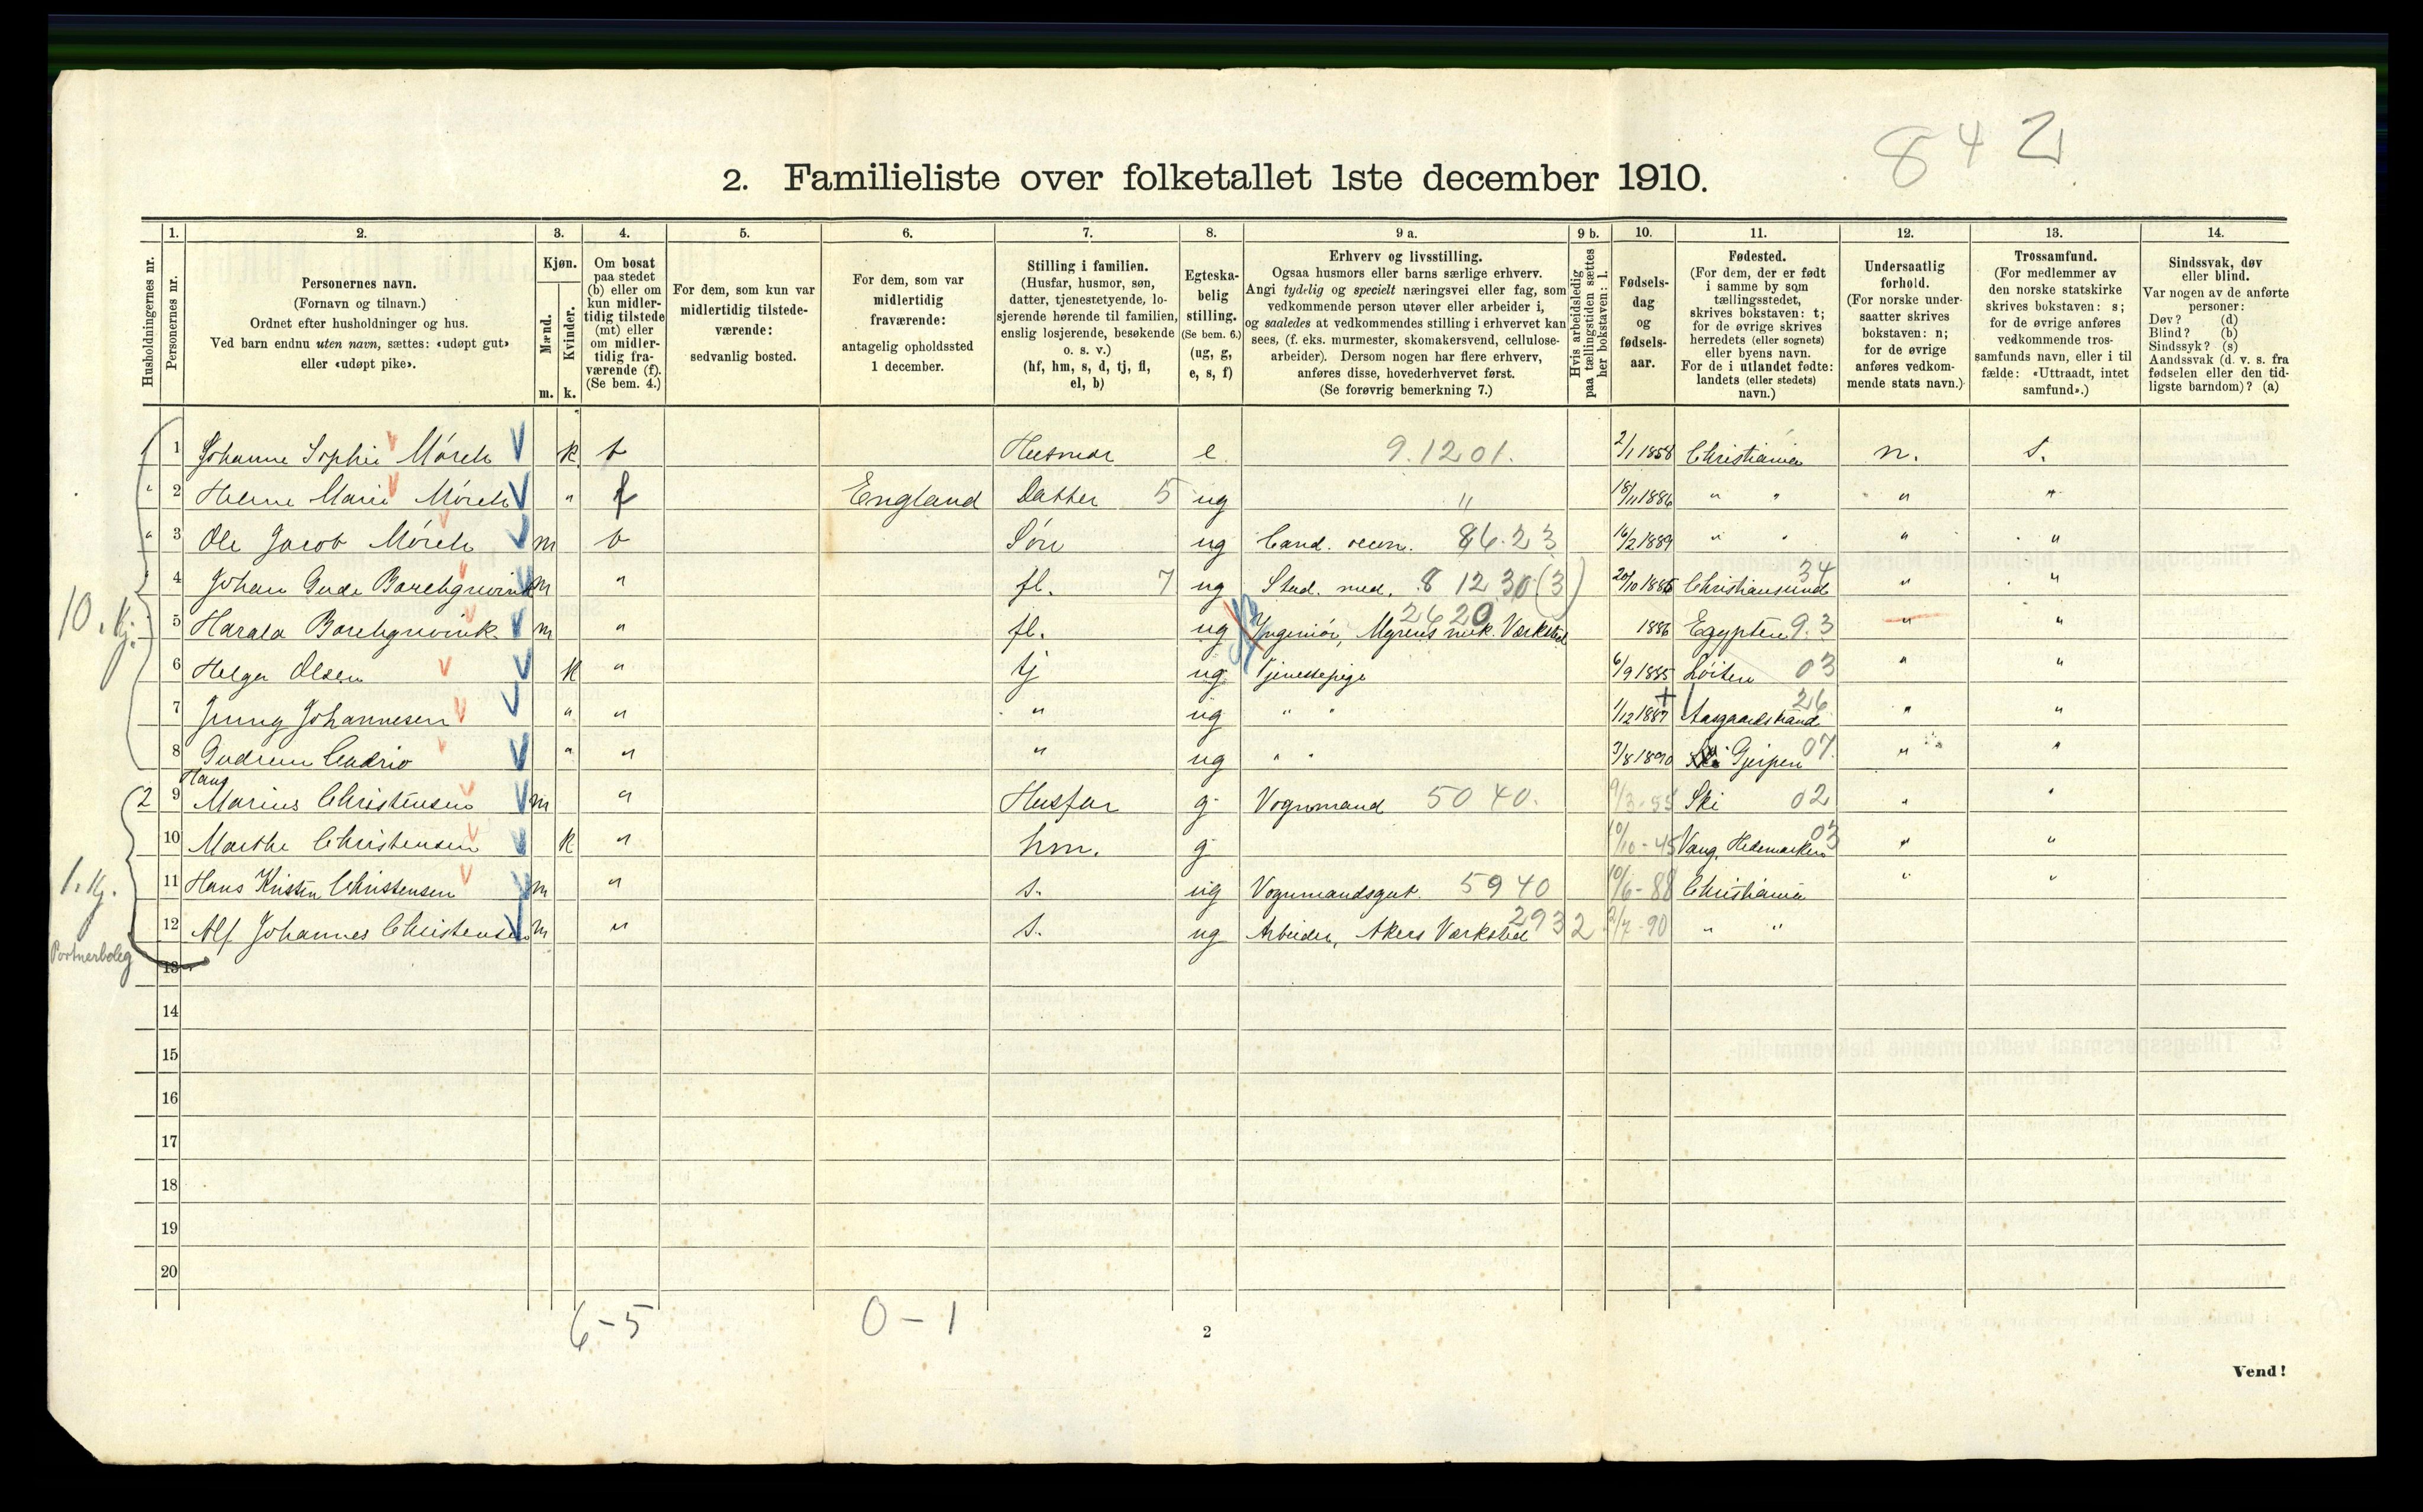 842
2. Familieliste over folketallet 1ste december 1910.
1. 2. 3. 4. 5. 6. 7. 8. 9 a. 9 b. 10. 11. 12. 13. 14.
Husholdningernes nr.
Personernes nr.
Personernes navn.
(Fornavn og tilnavn.)
Ordnet efter husholdninger og hus.
Ved barn endnu uten navn, sættes: «udøpt gut»
eller «udøpt pike».
Kjøn.
Mænd.
Kvinder.
m. k.
Om bosat
paa stedet
(b) eller om
kun midler-
tidig tilstede
(mt) eller
om midler-
tidig fra-
værende (f).
(Se bem. 4.)
For dem, som kun var
midlertidig tilstede-
værende:
sedvanlig bosted.
For dem, som var
midlertidig
fraværende:
antagelig opholdssted
1 december.
Stilling i familien.
(Husfar, husmor, søn,
datter, tjenestetyende, lo-
sjerende hørende til familien,
enslig losjerende, besøkende
o. s. v.)
(hf, hm, s, d, tj, fl,
el, b)
Egteska-
belig
stilling.
(Se bem. 6.)
(ug, g,
e, s, f)
Erhverv og livsstilling.
Ogsaa husmors eller barns særlige erhverv.
Angi tydelig og specielt næringsvei eller fag, som
vedkommende person utøver eller arbeider i,
og saaledes at vedkommendes stilling i erhvervet kan
sees, (f. eks. murmester, skomakersvend, cellulose-
arbeider). Dersom nogen har flere erhverv,
anføres disse, hovederhvervet først.
(Se forøvrig bemerkning 7.)
Hvis arbeidsledig
paa tællingstiden sættes
her bokstaven: l.
Fødsels-
dag
og
fødsels-
aar.
Fødested.
(For dem, der er født
i samme by som
tællingsstedet,
skrives bokstaven: t;
for de øvrige skrives
herredets (eller sognets)
eller byens navn.
For de i utlandet fødte:
landets (eller stedets)
navn.)
Undersaatlig
forhold.
(For norske under-
saatter skrives
bokstaven: n;
for de øvrige
anføres vedkom-
mende stats navn.)
Trossamfund.
(For medlemmer av
den norske statskirke
skrives bokstaven: s;
for de øvrige anføres
vedkommende tros-
samfunds navn, eller i til
fælde: «Uttraadt, intet
samfund».)
Sindssvak, døv
eller blind.
Var nogen av de anførte
personer:
Døv? (d)
Blind? (b)
Sindssyk? (s)
Aandssvak (d. v. s. fra
fødselen eller den tid-
ligste barndom)? (a)
1 1 Johanne Sophie Mørch k b Husmor e 9.1201. 2/1 1858 Christiania n. s.
" 2 Helene Marie Mørch " f England Datter 5 ug " 18/11 1886 " " " "
" 3 Ole Jacob Mørch m b Søn ug Cand. oecon. 86.23 16/2 1889 " " " "
" 4 Johan Gude Borchgrevink m " fl. 7 ug Stud. med. 8 12 30 (3) 20/10 1886 Christiansund 34 " "
10. Kj. 5 Harald Borchgrevink m " fl. ug Ingeniør, Myrens mek. Værksted 2620 1886 Egypten 93 " "
6 Helga Olsen k " tj ug Tjenestepige 6/9 1885 Løiten 03 " "
7 Jenny Johannesen " " " ug " " 1/12 1887 Aasgaardstrand 26 " "
8 Gudrun " " " ug " " 3/8 1890 Gjerpen 07 " "
2 9 Hans Marius Christensen m " Husfar g Vognmand 5040. 9/3-55 Ski 02 " "
10 Marthe Christensen k " hm. g 10/10-45 Vang, Hedemarken 03 " "
1. Kj. 11 Hans Kristen Christensen m " s. ug Vognmandsgut 5940 10/6-88 Christiania " "
12 Alf Johannes Christensen m " s. ug Arbeider, Akers Værksted 2932 2/7-90 " "
Portnerbolig
13
14
15
16
17
18
19
20
6-5 0-1
2
Vend!